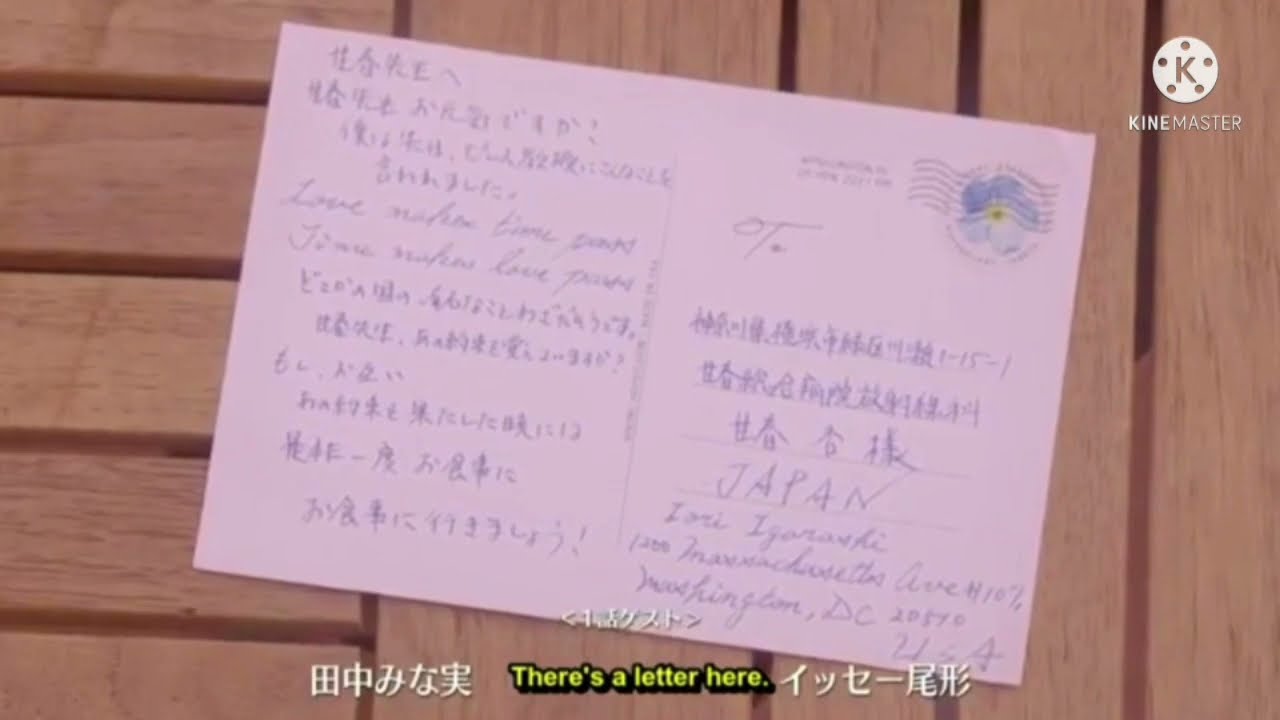 甘春先生へ
甘春先生 お元気ですか?
僕は先日、ピレス教授にこんなことを
言われました。
Love makes time pass
Time makes love pass
どこかの国の、有名なことわざだそうです。
甘春先生、あの約束を覚えていますか?
もし、お互い
あの約束を果たした暁には
是非一度 お食事に
お食事に行きましょう!
To.
神奈川県横浜市緑区川瀬1-15-1
甘春総合病院放射線科
甘春 杏様
JAPAN
Iori Igarashi
1200 Massachusetts Ave #10
Washington, DC 20540
USA
K
KINEMASTER
<1話ゲスト>
田中みな実
There's a letter here.
イッセー尾形